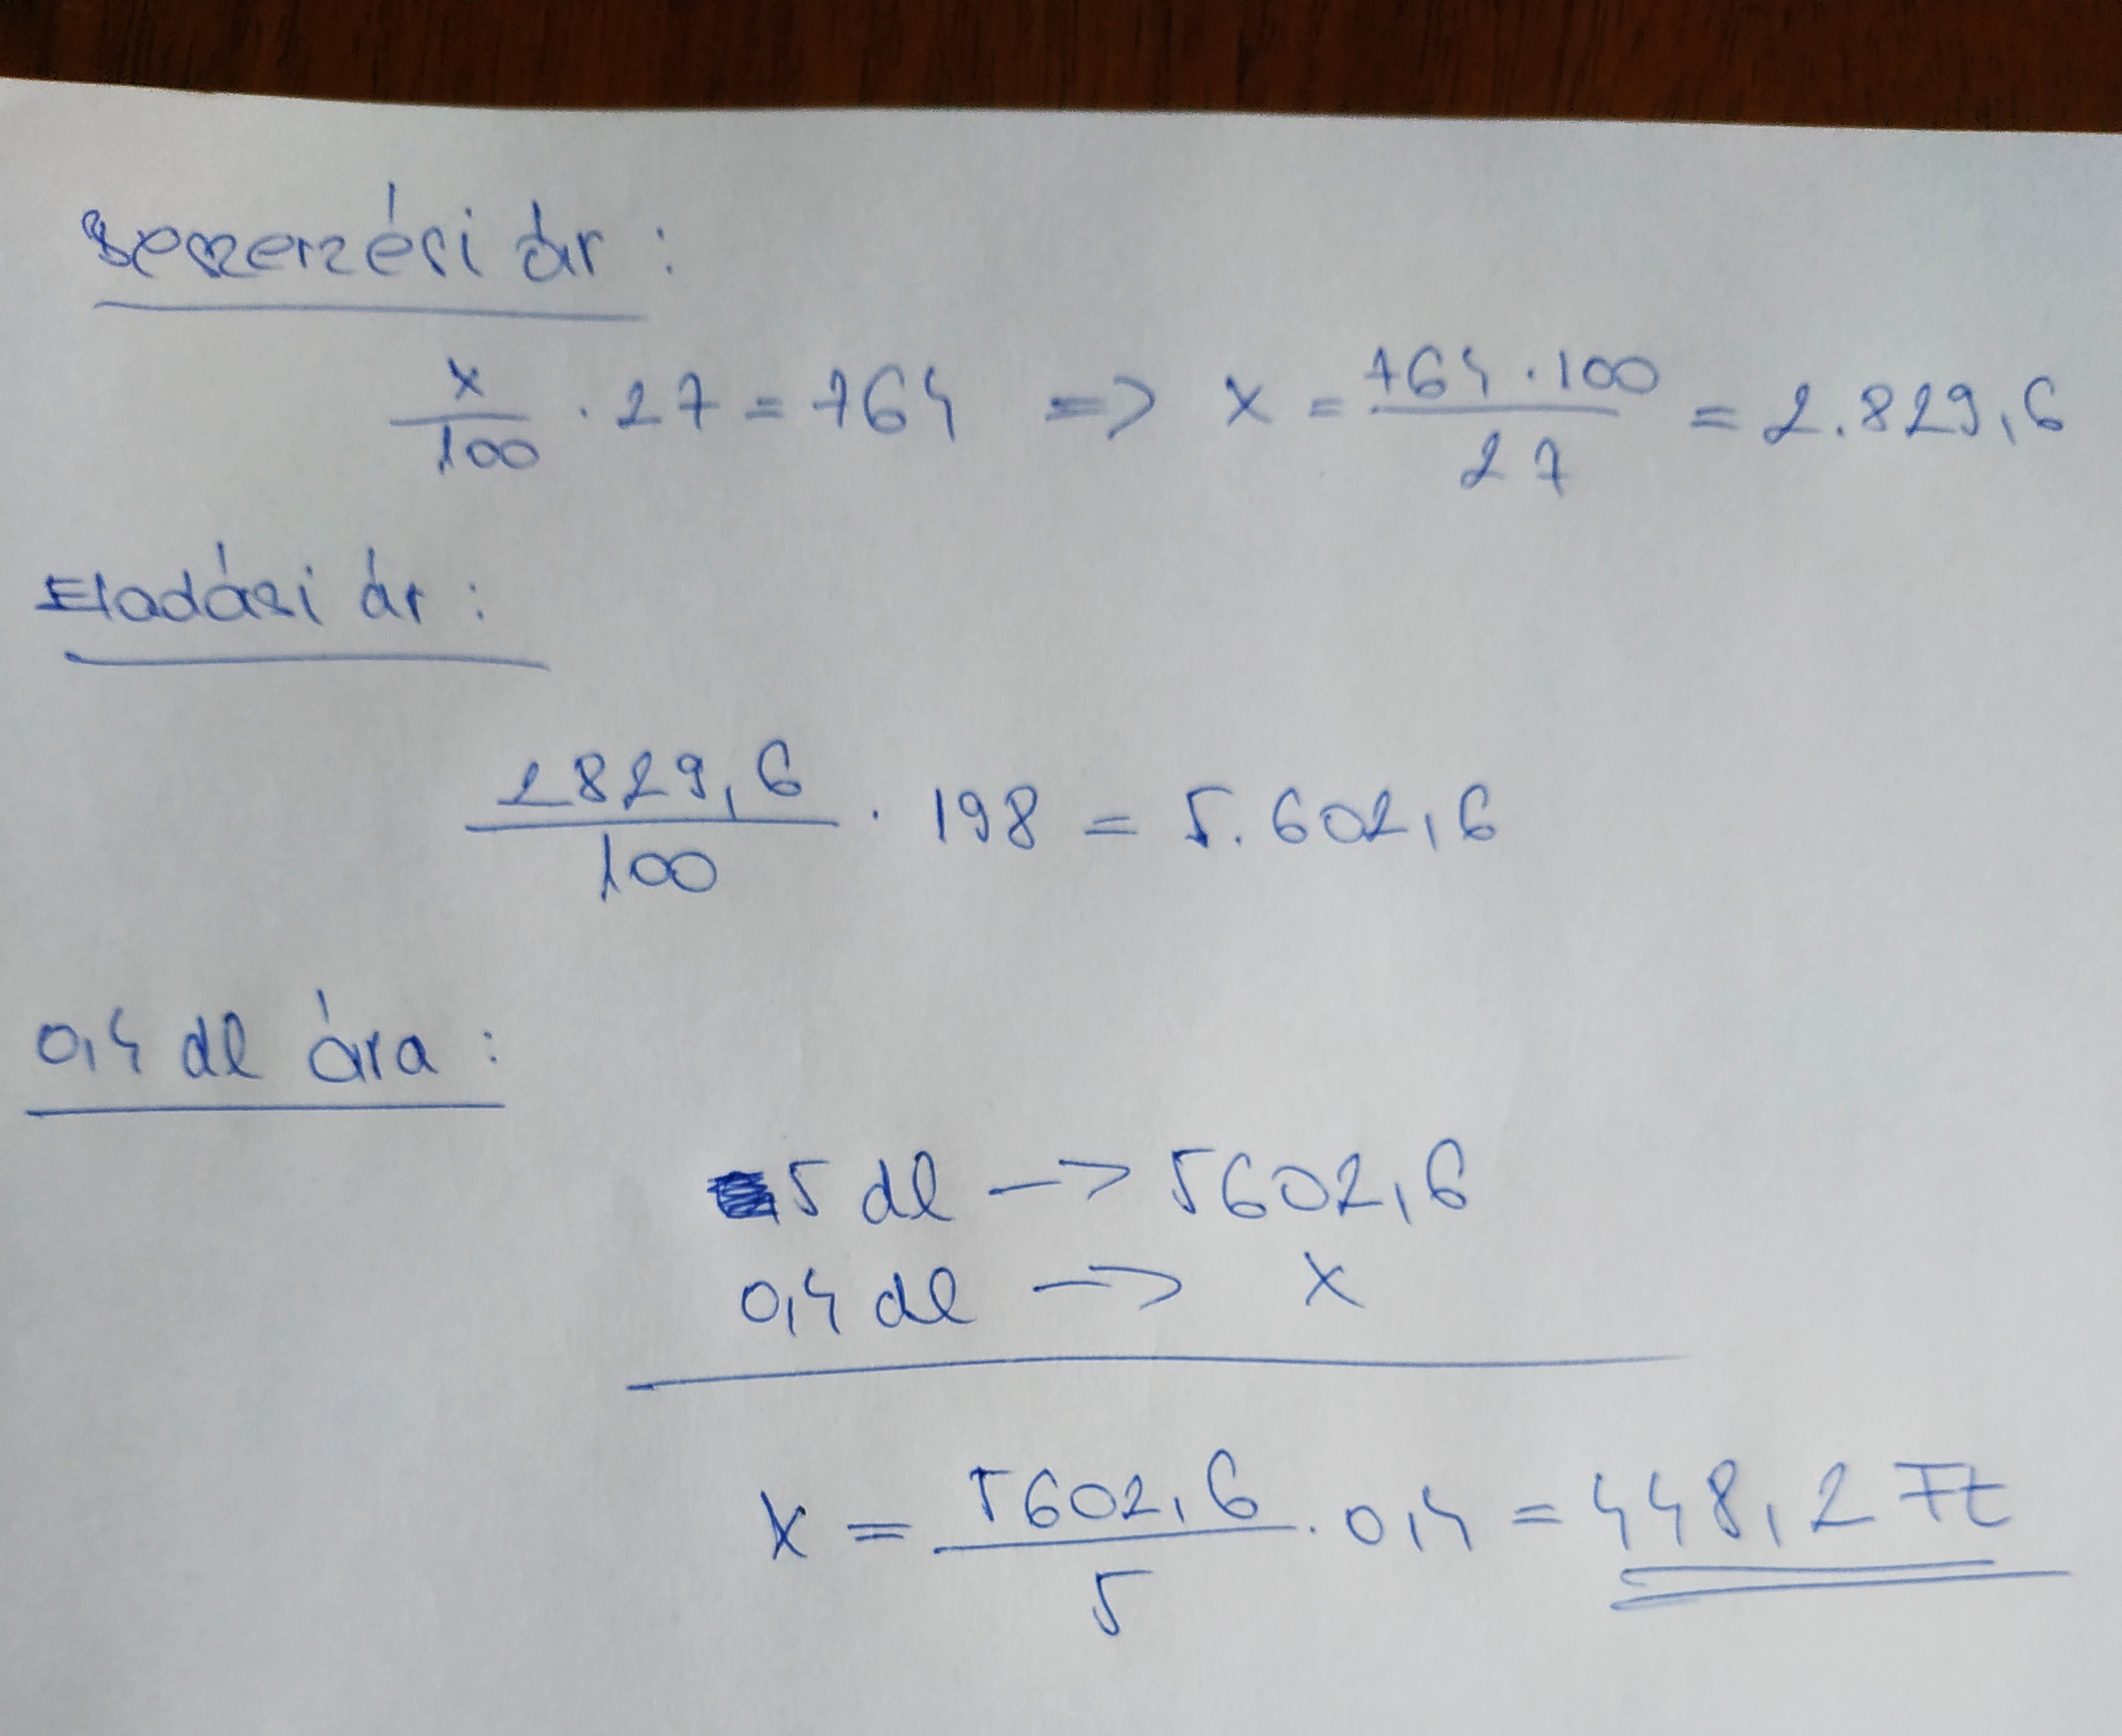 Beszerzési ár :
x/100 · 27 = 764 => x = 764 · 100/27 = 2.829,6
Eladási ár :
2829,6/100 · 198 = 5.602,6
0,4 dl ára :
5 dl -> 5602,6
0,4 dl -> x
x = 5602,6/5 · 0,4 = 448,2 Ft